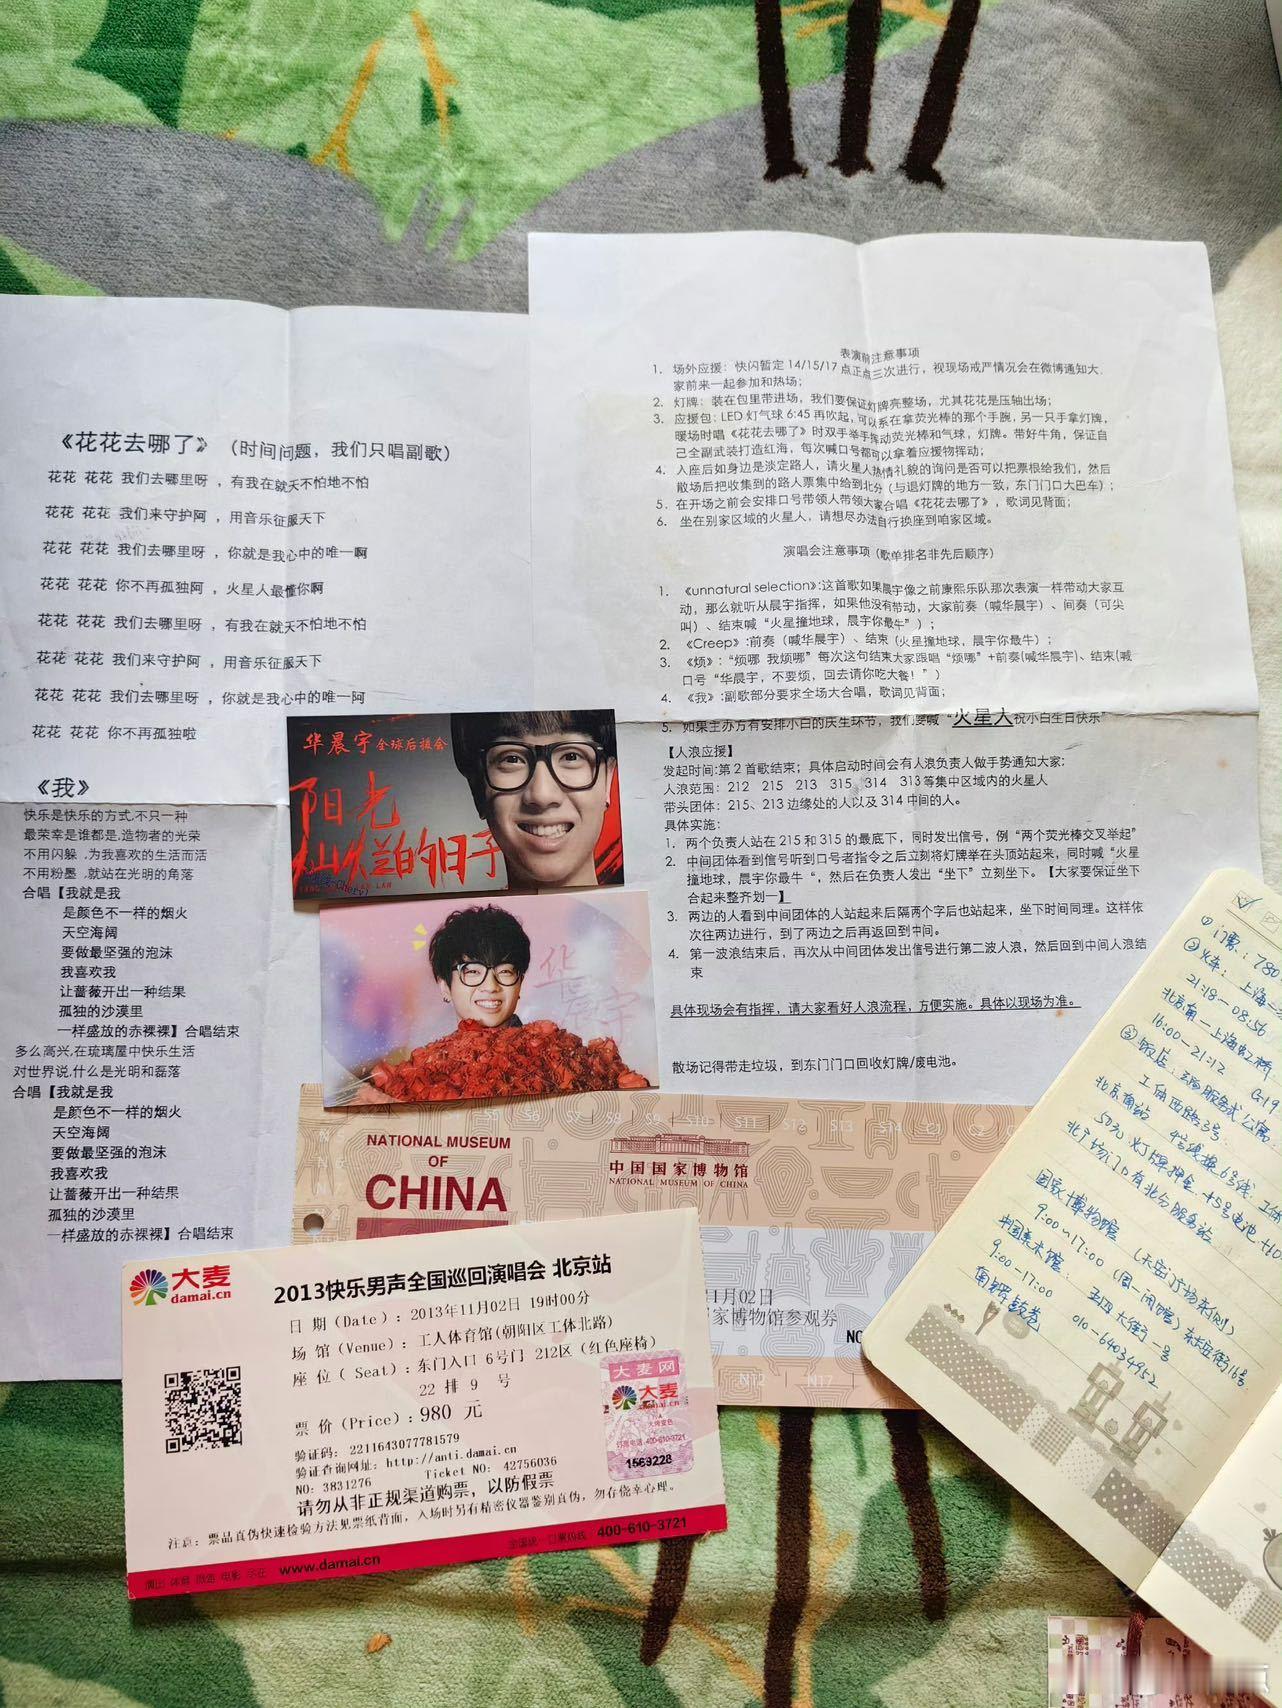 《花花去哪了》（时间问题，我们只唱副歌）
花花 花花 我们去哪里呀 ，有我在就天不怕地不怕
花花 花花 我们来守护阿 ，用音乐征服天下
花花 花花 我们去哪里呀 ，你就是我心中的唯一啊
花花 花花 你不再孤独阿 ，火星人最懂你啊
花花 花花 我们去哪里呀 ，有我在就天不怕地不怕
花花 花花 我们来守护阿 ，用音乐征服天下
花花 花花 我们去哪里呀 ，你就是我心中的唯一阿
花花 花花 你不再孤独啦
《我》
快乐是快乐的方式,不只一种
最荣幸是谁都是,造物者的光荣
不用闪躲 ,为我喜欢的生活而活
不用粉墨 ,就站在光明的角落
合唱【我就是我
是颜色不一样的烟火
天空海阔
要做最坚强的泡沫
我喜欢我
让蔷薇开出一种结果
孤独的沙漠里
一样盛放的赤裸裸】合唱结束
多么高兴,在琉璃屋中快乐生活
对世界说,什么是光明和磊落
合唱【我就是我
是颜色不一样的烟火
天空海阔
要做最坚强的泡沫
我喜欢我
让蔷薇开出一种结果
孤独的沙漠里
一样盛放的赤裸裸】合唱结束
表演前注意事项
1. 场外应援：快闪暂定 14/15/17 点正点三次进行，视现场戒严情况会在微博通知大
家前来一起参加和热场；
2. 灯牌：装在包里带进场，我们要保证灯牌亮整场，尤其花花是压轴出场；
3. 应援包：LED 灯气球 6:45 再吹起，可以系在拿荧光棒的那个手腕，另一只手拿灯牌，
暖场时唱《花花去哪了》时双手举手挥动荧光棒和气球，灯牌。带好牛角，保证自
己全副武装打造红海，每次喊口号都可以拿着应援物挥动；
4. 入座后如身边是淡定路人，请火星人热情礼貌的询问是否可以把票根给我们，然后
散场后把收集到的路人票集中给到北分（与退灯牌的地方一致，东门门口大巴车）；
5. 在开场之前会安排口号带领人带领大家合唱《花花去哪了》，歌词见背面；
6. 坐在别家区域的火星人，请想尽办法自行换座到咱家区域。
演唱会注意事项（歌单排名非先后顺序）
1. 《unnatural selection》:这首歌如果晨宇像之前康熙乐队那次表演一样带动大家互
动，那么就听从晨宇指挥，如果他没有带动，大家前奏（喊华晨宇）、间奏（可尖
叫）、结束喊“火星撞地球，晨宇你最牛”）；
2. 《Creep》:前奏（喊华晨宇）、结束（火星撞地球，晨宇你最牛）；
3. 《烦》：“烦哪 我烦哪”每次这句结束大家跟唱“烦哪”+前奏(喊华晨宇)、结束(喊
口号“华晨宇，不要烦，回去请你吃大餐！”）
4. 《我》:副歌部分要求全场大合唱，歌词见背面；
5. 如果主办方有安排小白的庆生环节，我们要喊“火星人祝小白生日快乐”
【人浪应援】
发起时间:第 2 首歌结束；具体启动时间会有人浪负责人做手势通知大家;
人浪范围：212 215 213 315 314 313 等集中区域内的火星人
带头团体：215、213 边缘处的人以及 314 中间的人。
具体实施：
1. 两个负责人站在 215 和 315 的最底下，同时发出信号，例“两个荧光棒交叉举起”
2. 中间团体看到信号听到口号者指令之后立刻将灯牌举在头顶站起来，同时喊“火星
撞地球，晨宇你最牛“，然后在负责人发出“坐下”立刻坐下。【大家要保证坐下
合起来整齐划一】
3. 两边的人看到中间团体的人站起来后隔两个字后也站起来，坐下时间同理。这样依
次往两边进行，到了两边之后再返回到中间。
4. 第一波浪结束后，再次从中间团体发出信号进行第二波人浪，然后回到中间人浪结
束
具体现场会有指挥，请大家看好人浪流程，方便实施。具体以现场为准。
散场记得带走垃圾，到东门门口回收灯牌/废电池。
华晨宇全球后援会
阳光
灿烂的日子
华晨宇
S5 S6 S7 S8 S9 S10 S11 S14 C1 C2
NATIONAL MUSEUM
OF
CHINA
中国国家博物馆
NATIONAL MUSEUM OF CHINA
1月02日
家博物馆参观券
NO
N12 N17
大麦
damai.cn
2013快乐男声全国巡回演唱会 北京站
日 期（Date）：2013年11月02日 19时00分
场 馆（Venue）：工人体育馆(朝阳区工体北路)
座 位（ Seat）：东门入口 6号门 212区（红色座椅）
22 排 9 号
票 价（Price）：980 元
验证码：2211643077781579
验证查询网址：http://anti.damai.cn
NO: 3831276 Ticket NO： 42756036
请勿从非正规渠道购票，以防假票
注意：票品真伪快速检验方法见票纸背面，入场时另有精密仪器鉴别真伪，勿存侥幸心理。
大麦网
大麦
damai.cn
订票电话:400-610-3721
1569228
www.damai.cn
全国统一订票热线：400-610-3721
① 门票：780
② 火车：上海
21:18—08:56
北京南—上海虹桥
16:00—21:12 G19
③ 饭店：
工体西路3号
北京南站 4号线换6号线
50元灯牌押金 +5号电池
北广场门口有北分服务站
国家博物馆 （天安门广场东侧）东长安街16号
9:00—17:00 （周一闭馆）
中国美术馆：五四大街一号
9:00—17:00 010-64034952